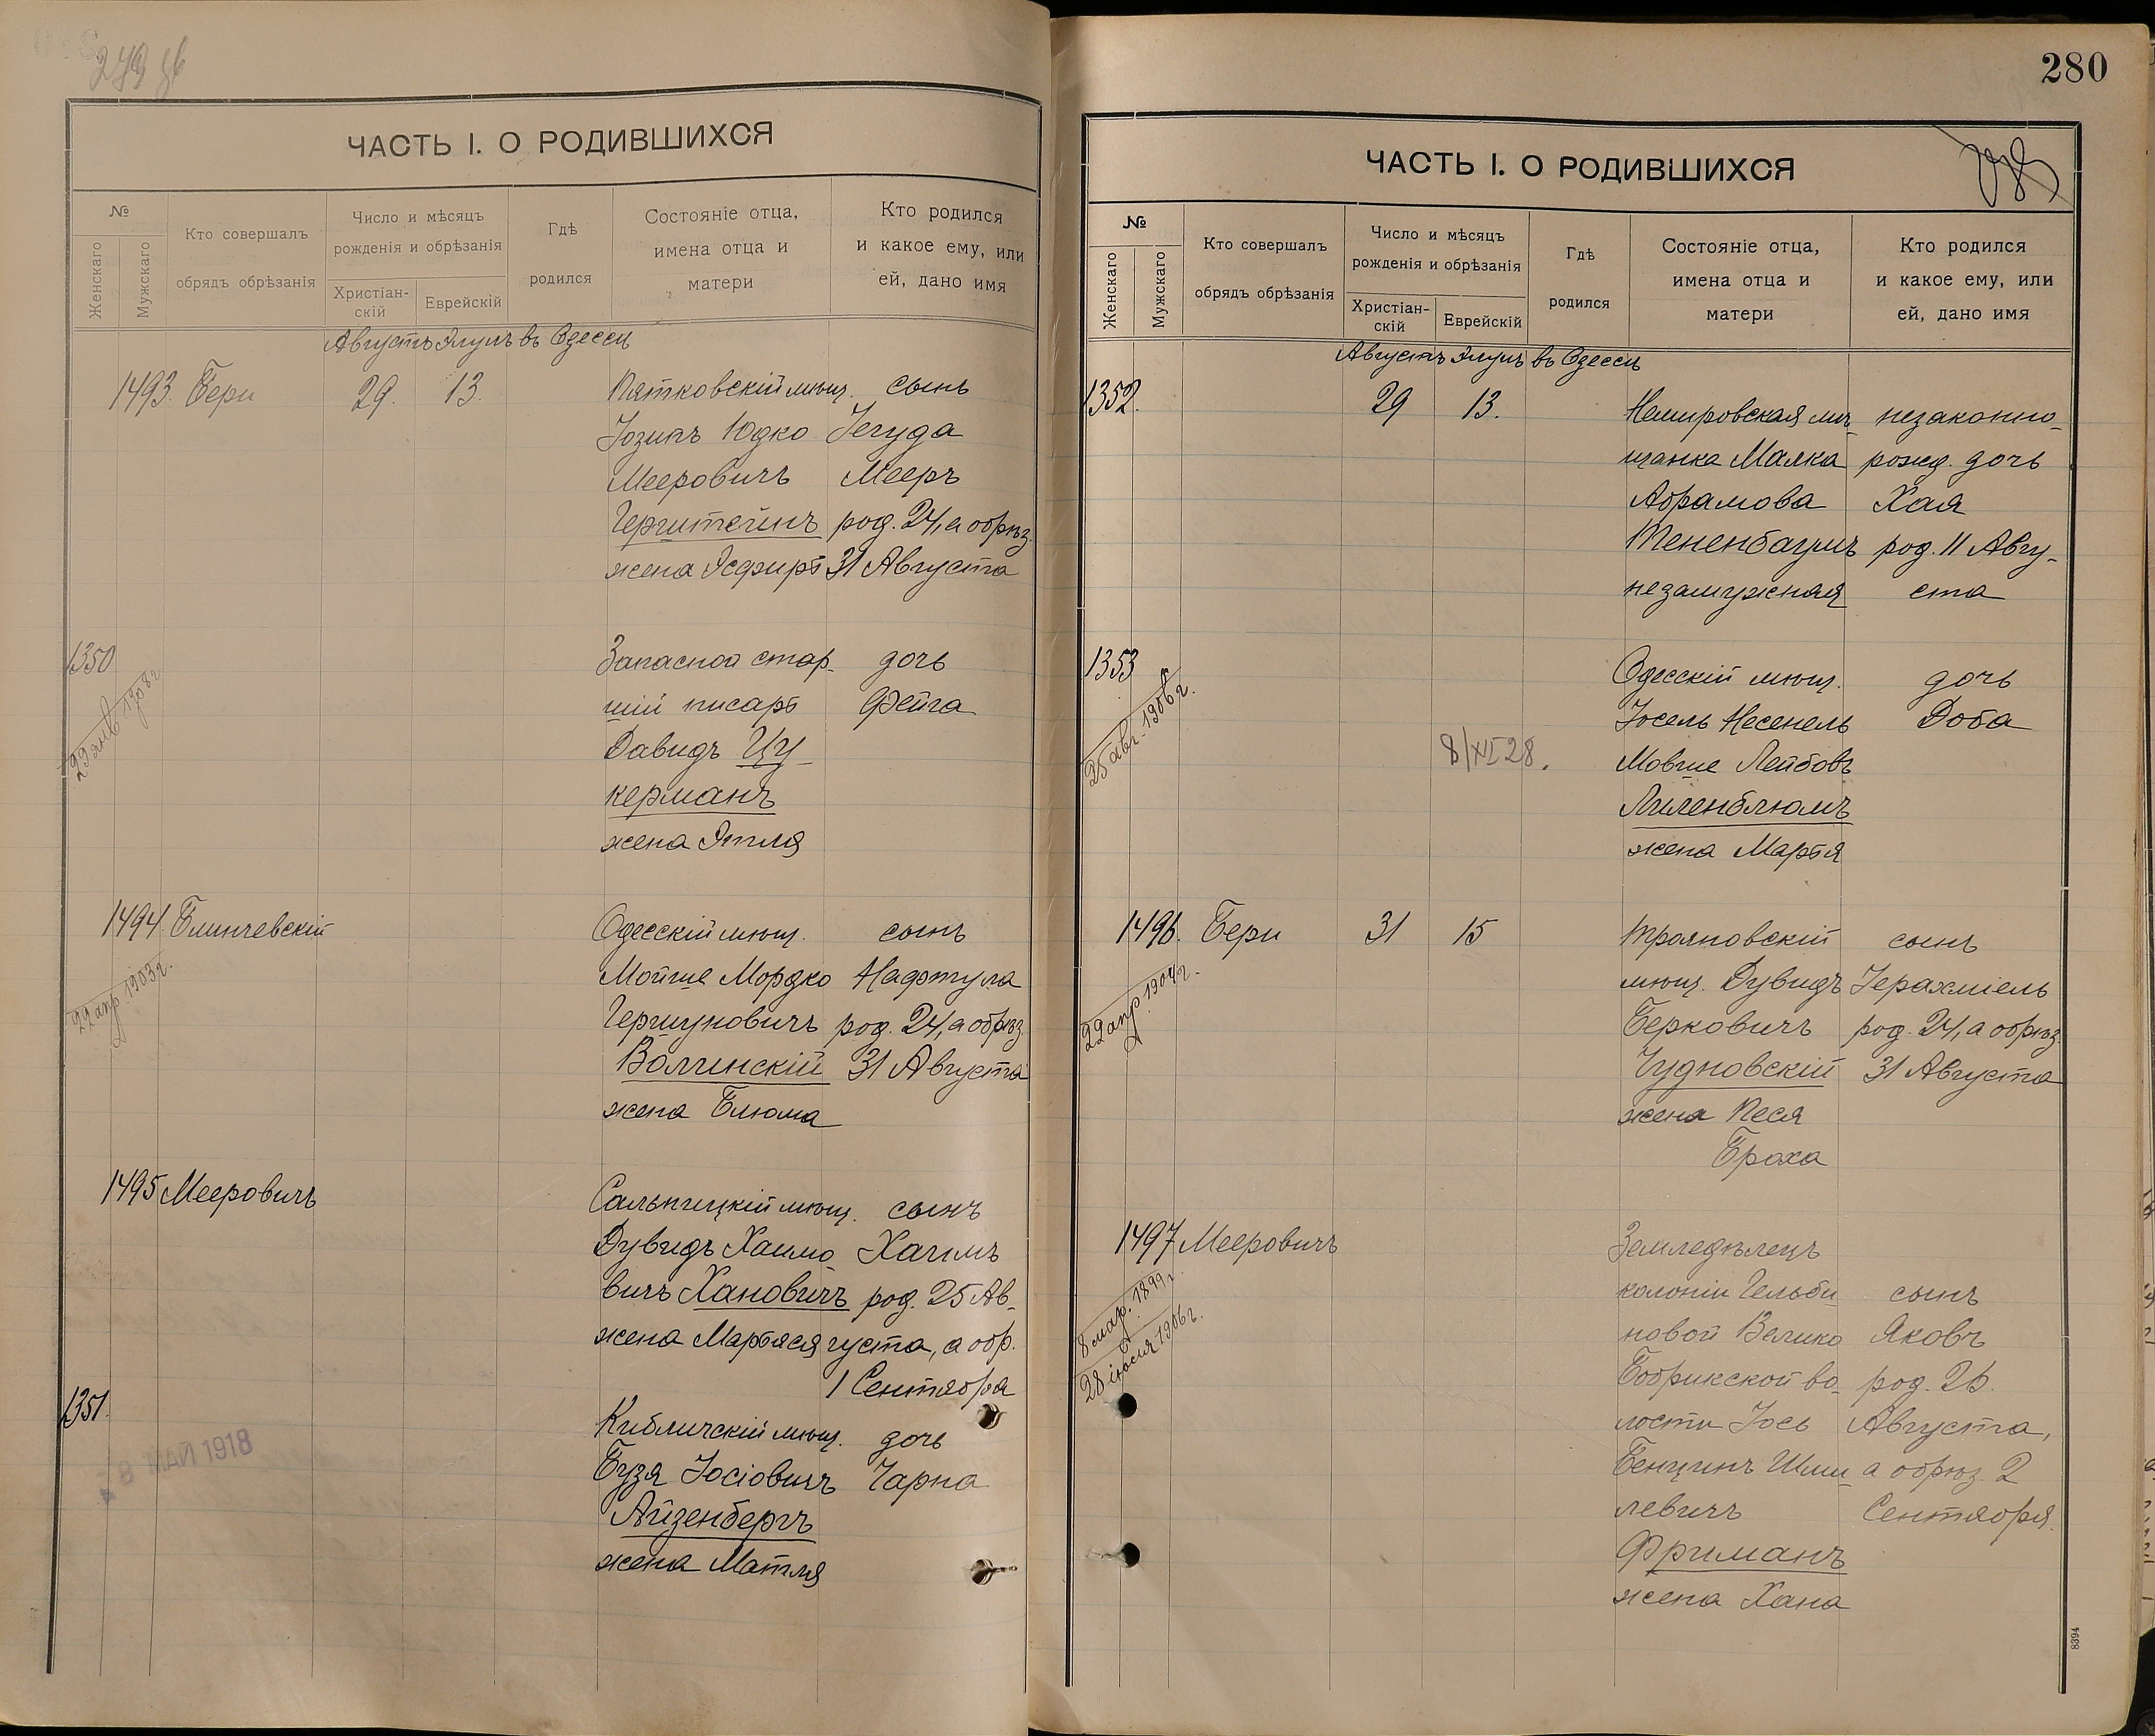 279 об
ЧАСТЬ I. О РОДИВШИХСЯ
№
Женскаго
Мужскаго
Кто совершалъ
обрядъ обрѣзанія
Число и мѣсяцъ
рожденія и обрѣзанія
Христіан-
скій
Еврейскій
Гдѣ
родился
Состояніе отца,
имена отца и
матери
Кто родился
и какое ему, или
ей, дано имя
Августъ Элулъ въ Одессѣ
1493. Бери 29. 13. Пятковскій мѣщ. сынъ
Іозипъ Юдко Іегуда
Мееровичъ Мееръ
Герштейнъ род. 24, а обрѣз.
жена Эсфирь 31 Августа
1350 Запасной стар- дочь
29 янв 1908 г.
шій писарь Фейга
Давидъ Цу-
керманъ
жена Этля
1494. Блинчевскій Одесскій мѣщ. сынъ
22 апр. 1903 г.
Мойше Мордко Нафтула
Гершуновичъ род. 24, а обрѣз.
Волчинскій 31 Августа
жена Блюма
1495 Мееровичъ Сальницкій мѣщ. сынъ
Дувидъ Хаимо- Хаимъ
вичъ Хановичъ род. 25 Ав-
жена Марьяся густа, а обр.
1 Сентября
1351. Кибличскій мѣщ. дочь
МАЙ 1918
Бузя Іосіовичъ Чарна
Айзенбергъ
жена Матля
280
ЧАСТЬ I. О РОДИВШИХСЯ
№
Женскаго
Мужскаго
Кто совершалъ
обрядъ обрѣзанія
Число и мѣсяцъ
рожденія и обрѣзанія
Христіан-
скій
Еврейскій
Гдѣ
родился
Состояніе отца,
имена отца и
матери
Кто родился
и какое ему, или
ей, дано имя
Августъ Элулъ въ Одессѣ
1352. 29 13. Немировская мѣ- незаконно-
щанка Малка рожд. дочь
Абрамова Хая
Тененбаумъ род. 11 Авгу-
незамужная ста
1353 Одесскій мѣщ. дочь
25 авг. 1906 г.
Іосель Несенель Доба
8/XII 28. Мовше Лейбовъ
Лиленблюмъ
жена Марья
1496. Бери 31 15 Трояновскій сынъ
22 апр. 1904 г.
мѣщ. Дувидъ Іерахміель
Берковичъ род. 24, а обрѣз.
Чудновскій 31 Августа
жена Песя
Браха
1497 Мееровичъ Земледѣлецъ
8 мар. 1899 г.
28 іюля 1906 г.
колоніи Гельби- сынъ
новой Велико Яковъ
Бобрикской во- род. 26.
лости Іось Августа,
Бенціинъ Шми- а обрѣз. 2
левичъ Сентября.
Фриманъ
жена Хана
8394